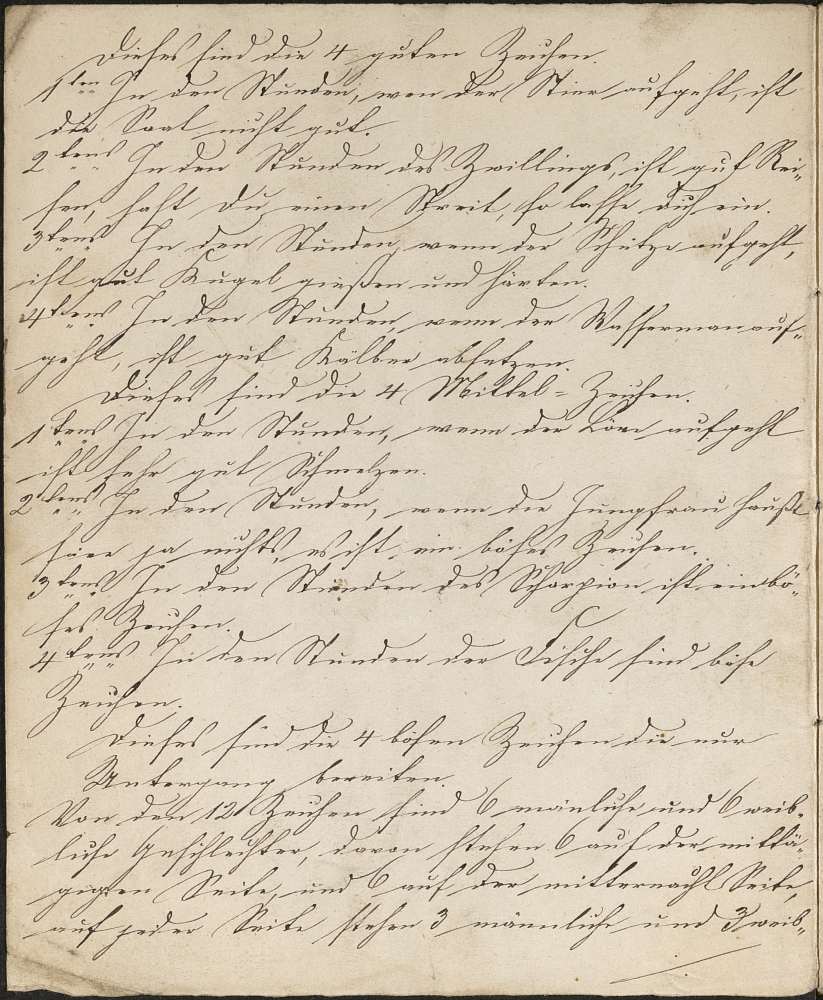 Dieses sind die 4 guten Zeichen.
1tens In den Stunden, wen der Stier aufgeht, ist
die Saat nicht gut.
2tens In den Stunden des Zwillings, ist gut Rei„
sen, hast du einen Streit, so lasse dich ein.
3tens In den Stunden, wenn der Schütze aufgeht,
ist gut Kugel gießen und härten.
4tens In den Stunden, wenn der Wasserman auf„
geht, ist gut Kälber absetzen.
Dieses sind die 4 Mittel-Zeichen.
1tens In den Stunden, wenn der Löwe aufgeht
ist sehr gut Schmelzen.
2tens In den Stunden, wenn die Jungfrau
säee ja nichts, es ist ein böses Zeichen.
3tens In den Stunden des Scharpion ist ein bö„
ses Zeichen.
4tens In den Stunden der Fische sind böse
Zeichen.
Dieses sind die 4 bösen Zeichen die nur
Untergang bereiten.
Von den 12 Zeichen sind 6 mänliche und 6 weib„
liche Geschlechter, davon stehen 6 auf der mittä„
gigen Seite, und 6 auf der mitternacht Seite,
auf jeder Seite stehen 3 männliche und 3 weib„